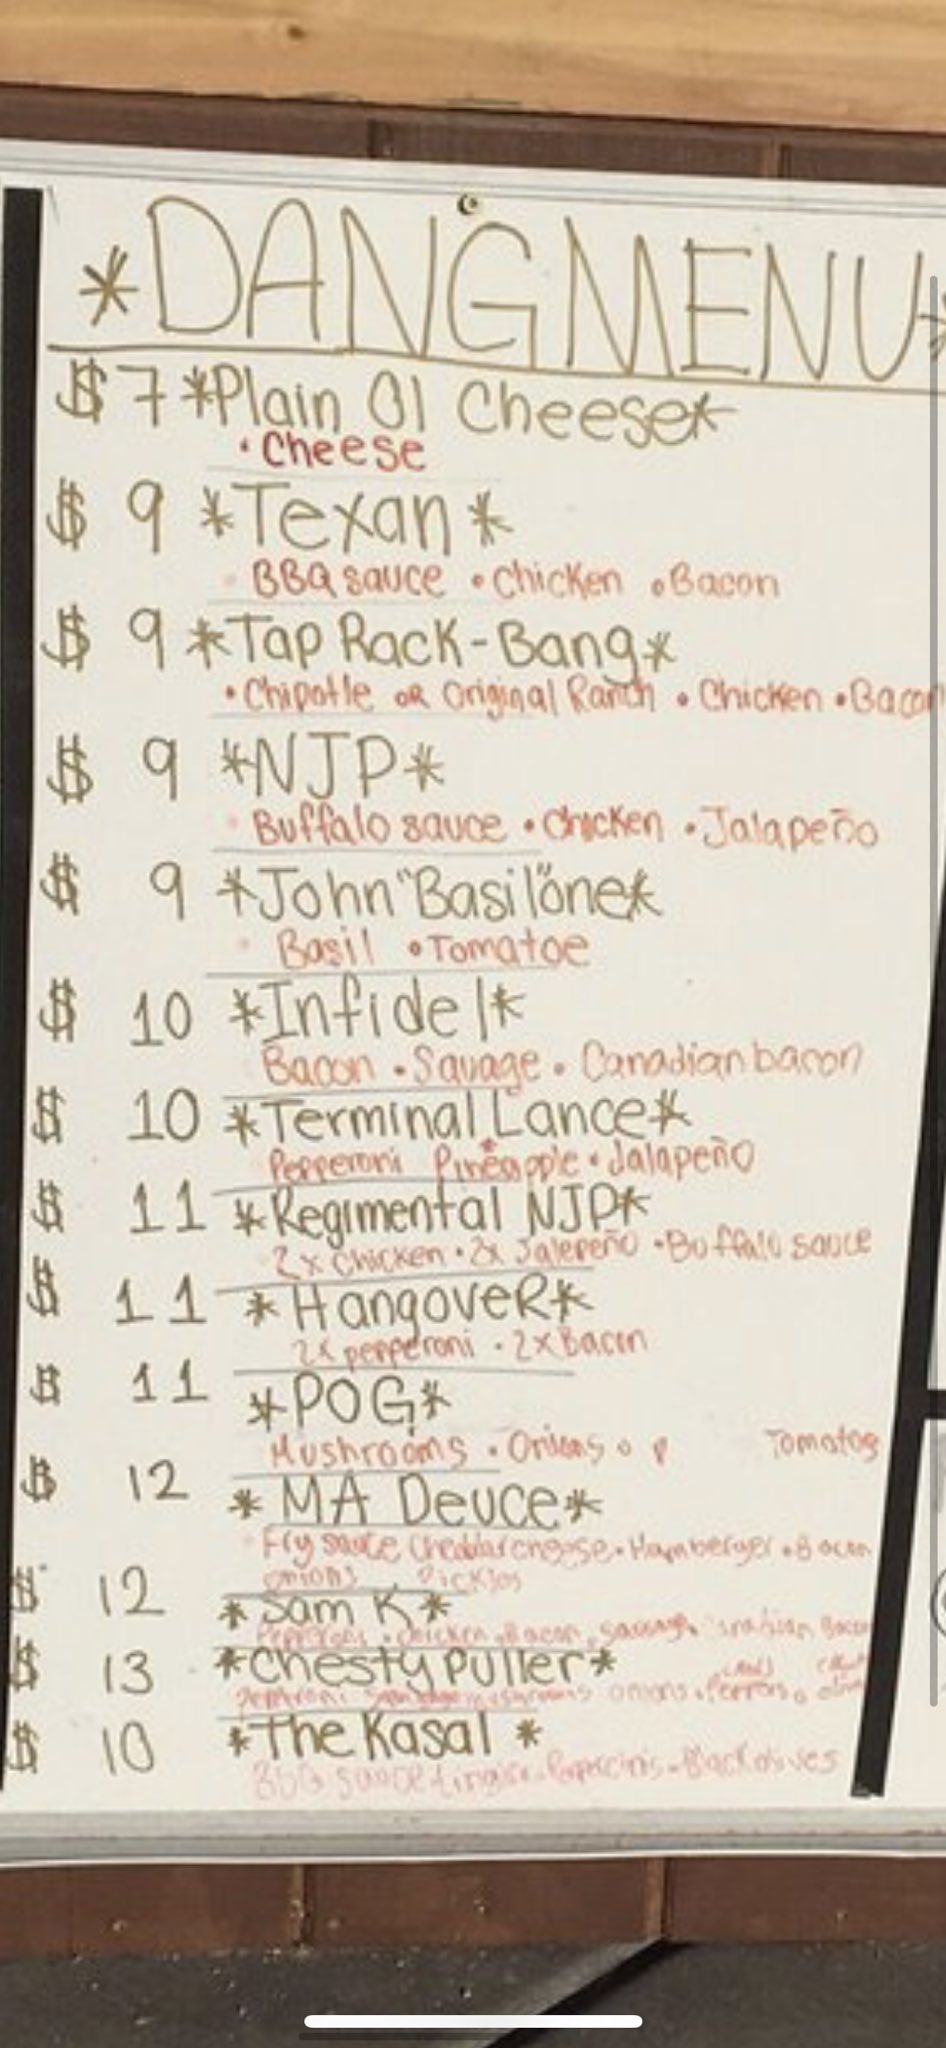 *DANG MENU*
$ 7 *Plain Ol Cheese*
• Cheese
$ 9 *Texan*
• BBQ sauce • Chicken • Bacon
$ 9 *Tap Rack-Bang*
• Chipotle or Original Ranch • Chicken • Bacon
$ 9 *NJP*
• Buffalo sauce • Chicken • Jalapeño
$ 9 *John "Basil"one*
• Basil • Tomatoe
$ 10 *Infidel*
Bacon • Sausage • Canadian bacon
$ 10 *Terminal Lance*
Pepperoni Pineapple • Jalapeño
$ 11 *Regimental NJP*
2x Chicken • 2x Jalepeño • Buffalo sauce
$ 11 *HangoveR*
2x pepperoni • 2x Bacon
$ 11 *POG*
Mushrooms • Onions • P Tomatoe
$ 12 *MA Deuce*
Fry sauce Cheddar cheese • Hamberger • Bacon
onions Pickles
$ 12 *Sam K*
Pepperoni • Chicken • Bacon • Sausage Bacon
$ 13 *Chesty Puller*
Pepperoni mushrooms onions
$ 10 *The Kasal*
BBQ sauce • Black olives